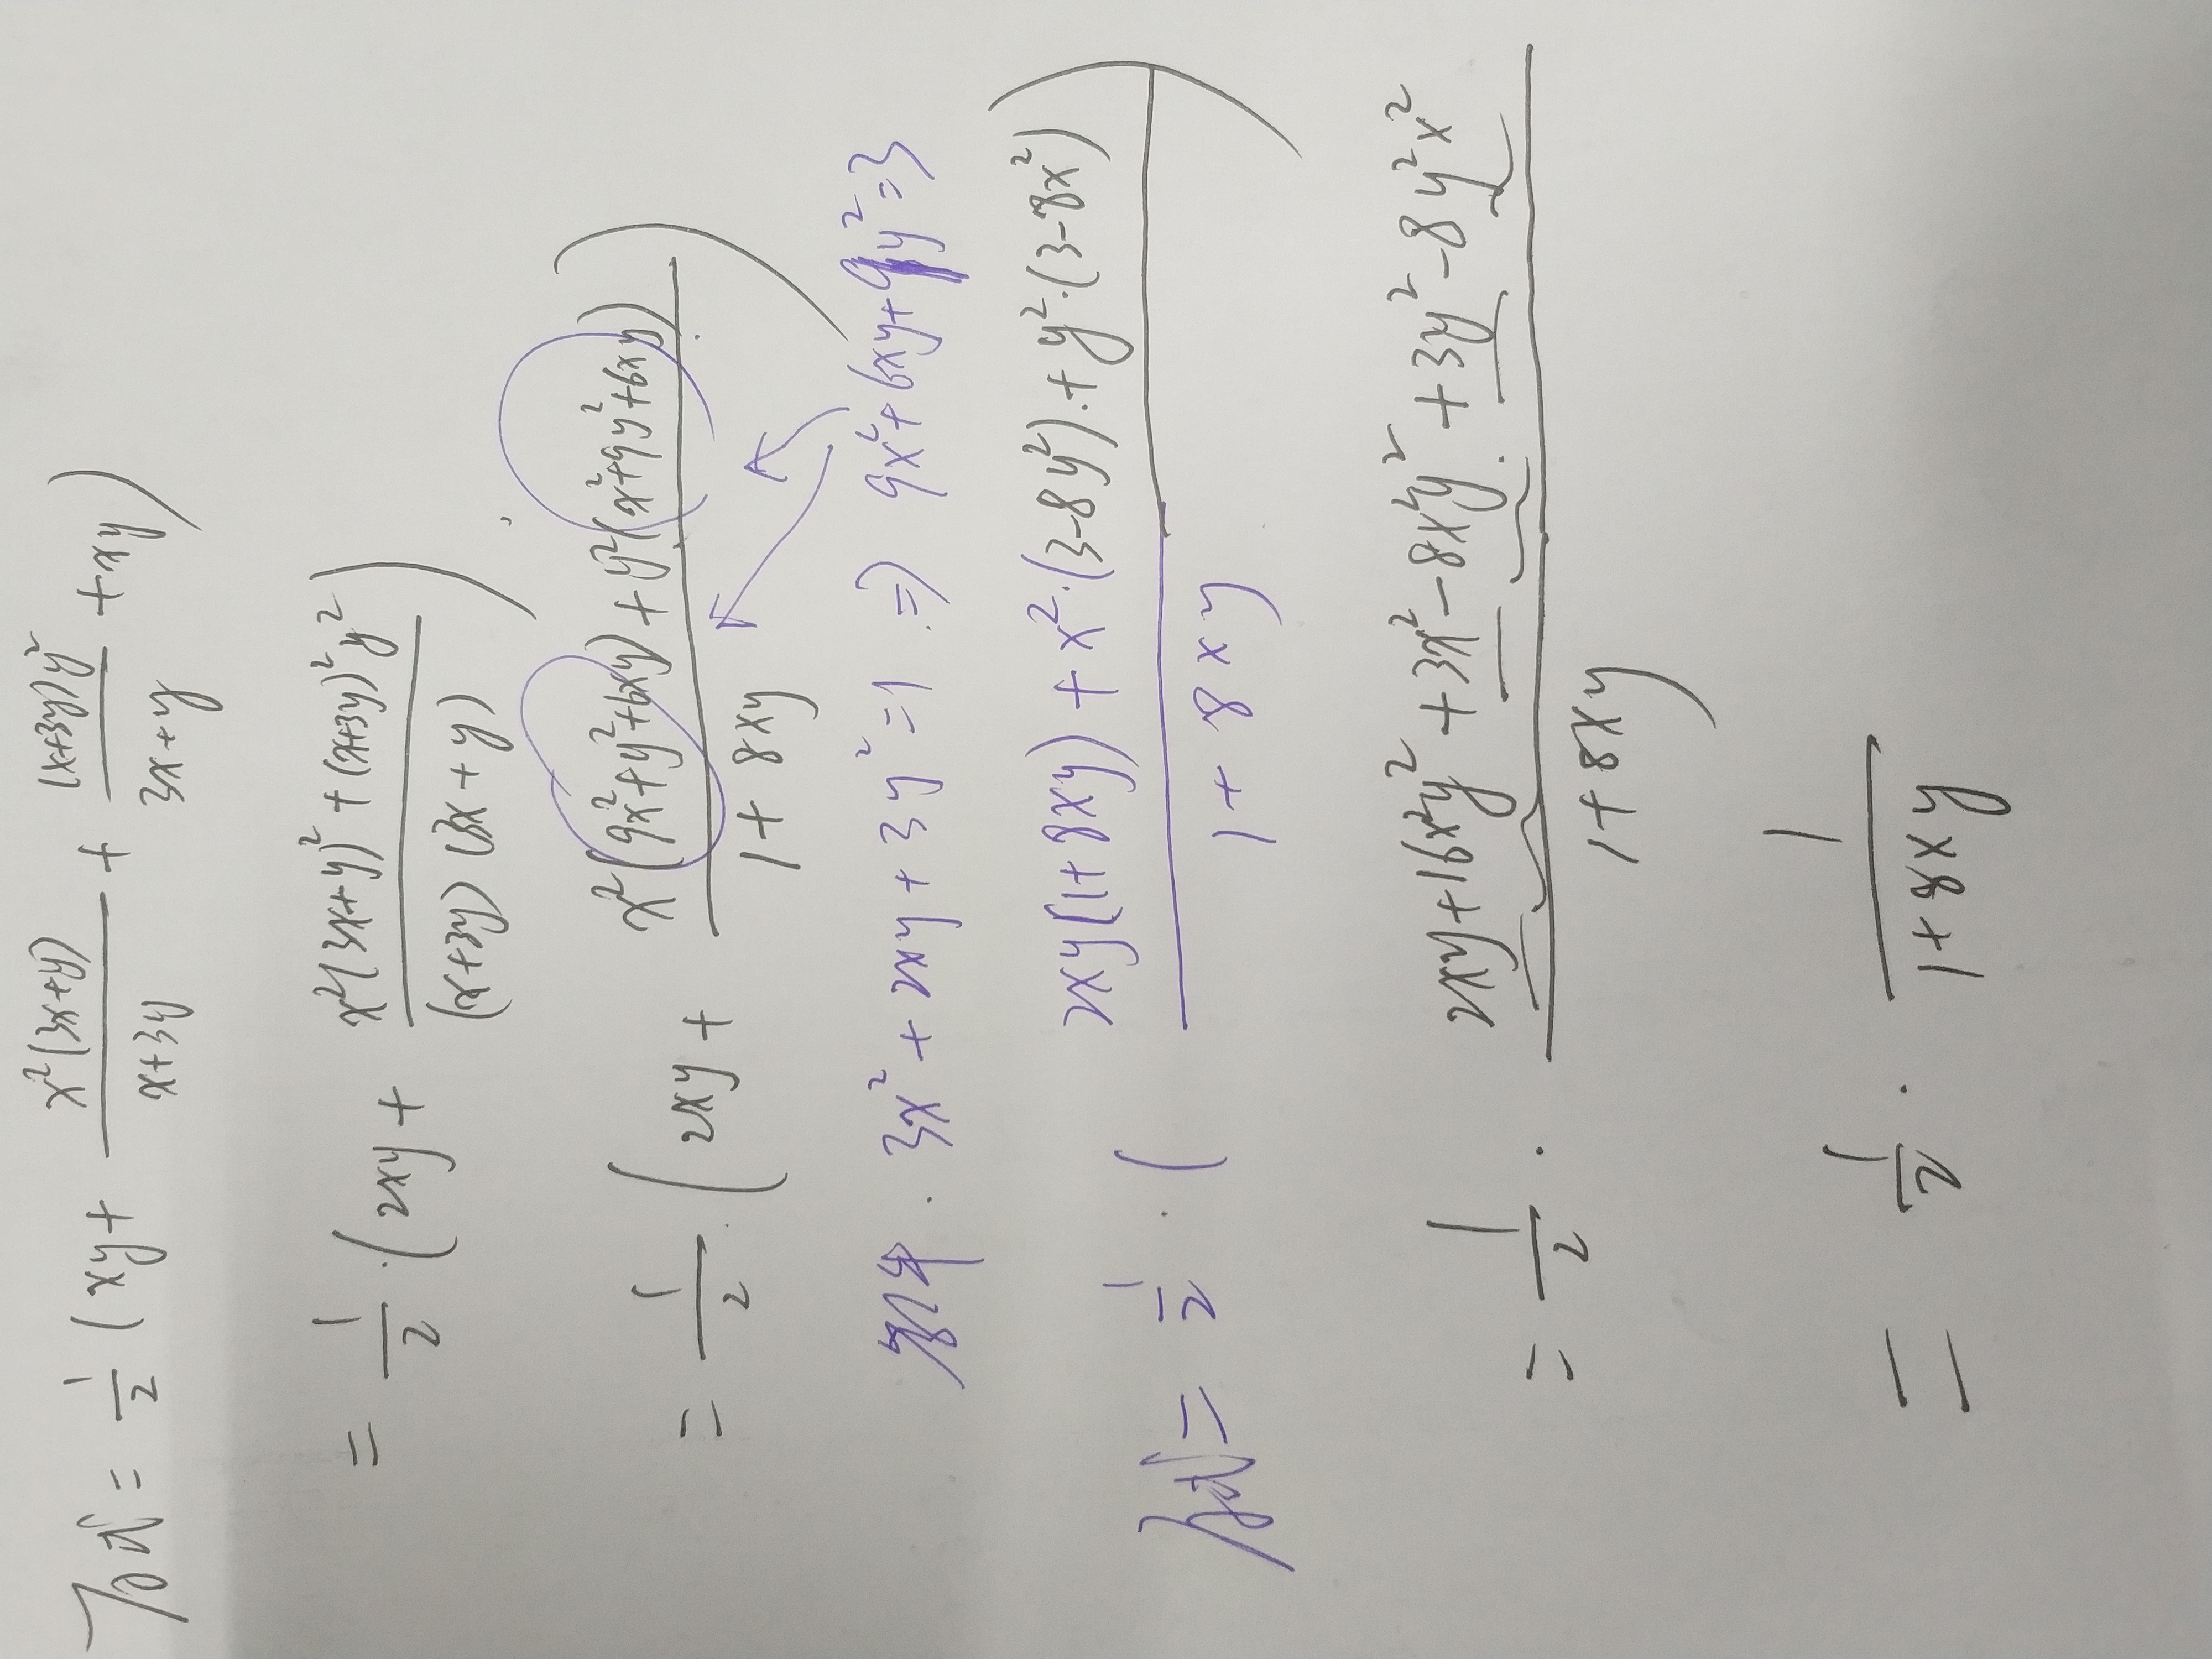 原式 = 1/2 (xy + x²(3x+y)/(x+3y) + (x+3y)y²/(3x+y) + xy)
= 1/2 · (2xy + (x²(3x+y)² + (x+3y)²y²)/((x+3y)(3x+y)))
= 1/2 · (2xy + (x²(9x²+y²+6xy) + y²(x²+9y²+6xy))/(1+8xy))
3x²+2xy+3y²=1 ⇒ 9x²+6xy+9y²=3
原式 = 1/2 · ((2xy(1+8xy) + x²·(3-8y²) + y²·(3-8x²))/(1+8xy))
= 1/2 · (2xy+16x²y²+3x²-8x²y²+3y²-8y²x²)/(1+8xy)
= 1/2 · 1/(1+8xy)